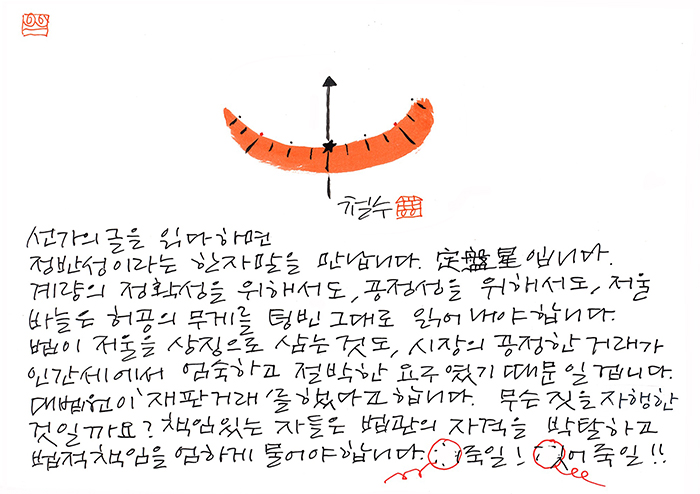 철수
선가의 글을 읽다하면
정반성이라는 한자말을 만납니다. 定盤星입니다.
계량의 정확성을 위해서도, 공정성을 위해서도, 저울
바늘은 허공의 무게를 텅빈 그대로 읽어내야합니다.
법이 저울을 상징으로 삼는 것도, 시장의 공정한 거래가
인간세에서 엄숙하고 절박한 요구였기 때문일겝니다.
대법원이 '재판거래'를 했다고 합니다. 무슨 짓을 자행한
것일까요? 책임있는 자들은 법관의 자격을 박탈하고
법적책임을 엄하게 물어야합니다. 죽일! 어 죽일!!